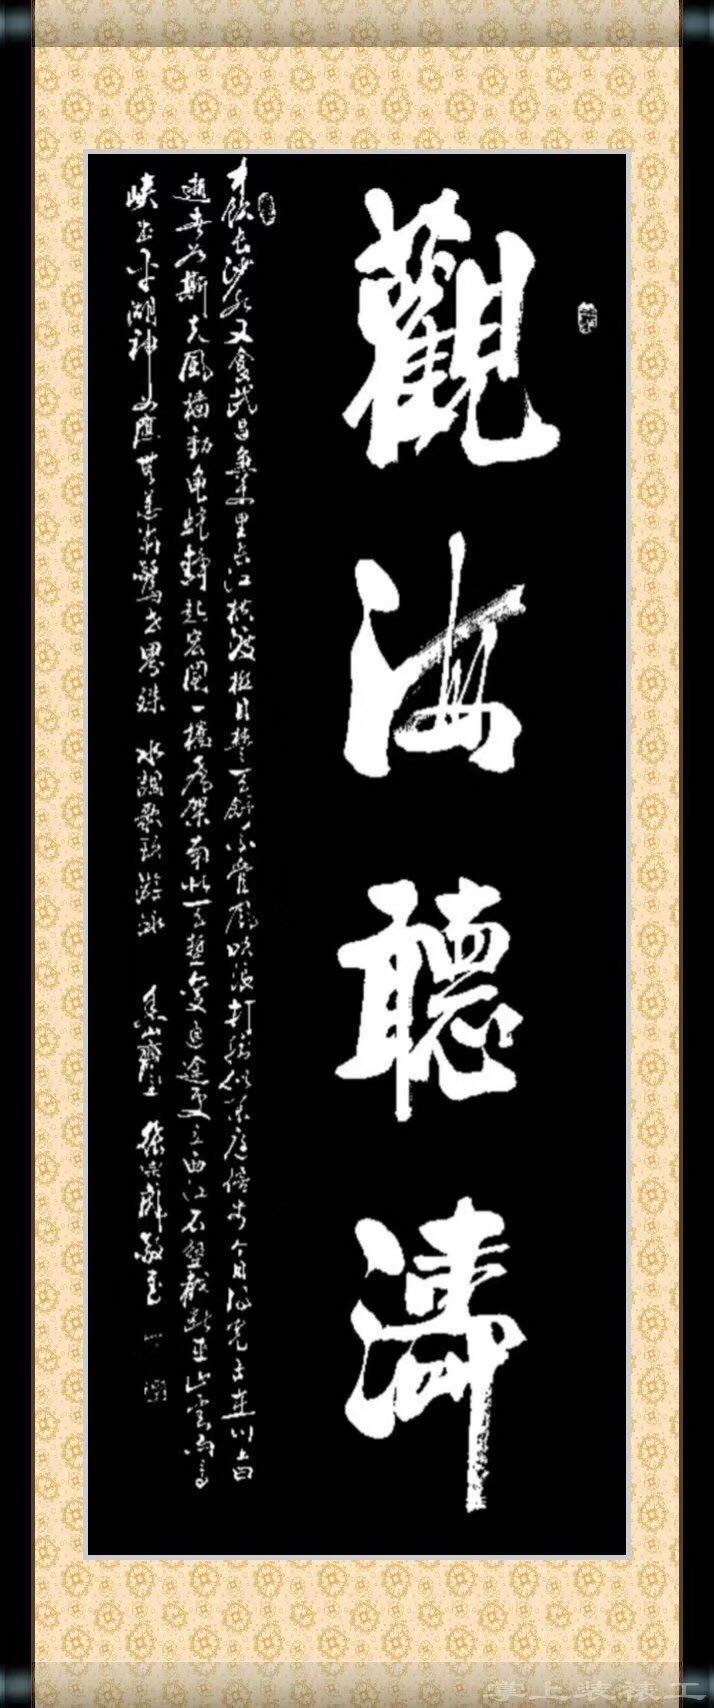 觀海聽濤
才飲長沙水又食武昌魚萬里长江橫渡極目楚天舒不管風吹浪打勝似閒庭信步今日得寬子在川上曰
逝者如斯夫風檣動龜蛇靜起宏圖一橋飛架南北天塹變通途更立西江石壁截斷巫山雲雨高
峽出平湖神女應無恙當驚世界殊 水調歌頭游泳 山齋主 敬書
掌上装裱工